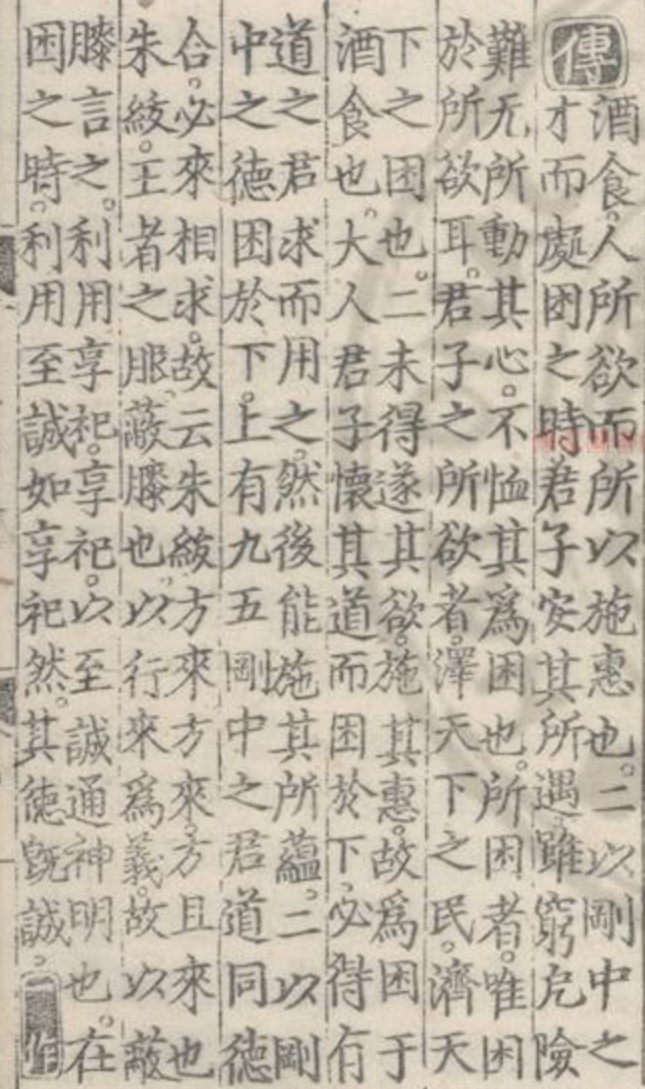 傳
酒食。人所欲而所以施惠也。二以剛中之
才而處困之時君子安其所遇雖窮厄險
難无所動其心。不恤其爲困也。所困者。唯困
於所欲耳。君子之所欲者。澤天下之民。濟天
下之困也。二未得遂其欲。施其惠。故爲困于
酒食也。大人君子懷其道而困於下、必得有
道之君求而用之。然後能施其所蘊。二以剛
中之德困於下。上有九五剛中之君道同德
合。必來相求。故云朱紱方來方來。方且來也
朱紱。王者之服、蔽膝也。以行來爲義。故以蔽
膝言之。利用享祀。享祀。以至誠通神明也。在
困之時。利用至誠如享祀然。其德旣誠。一作